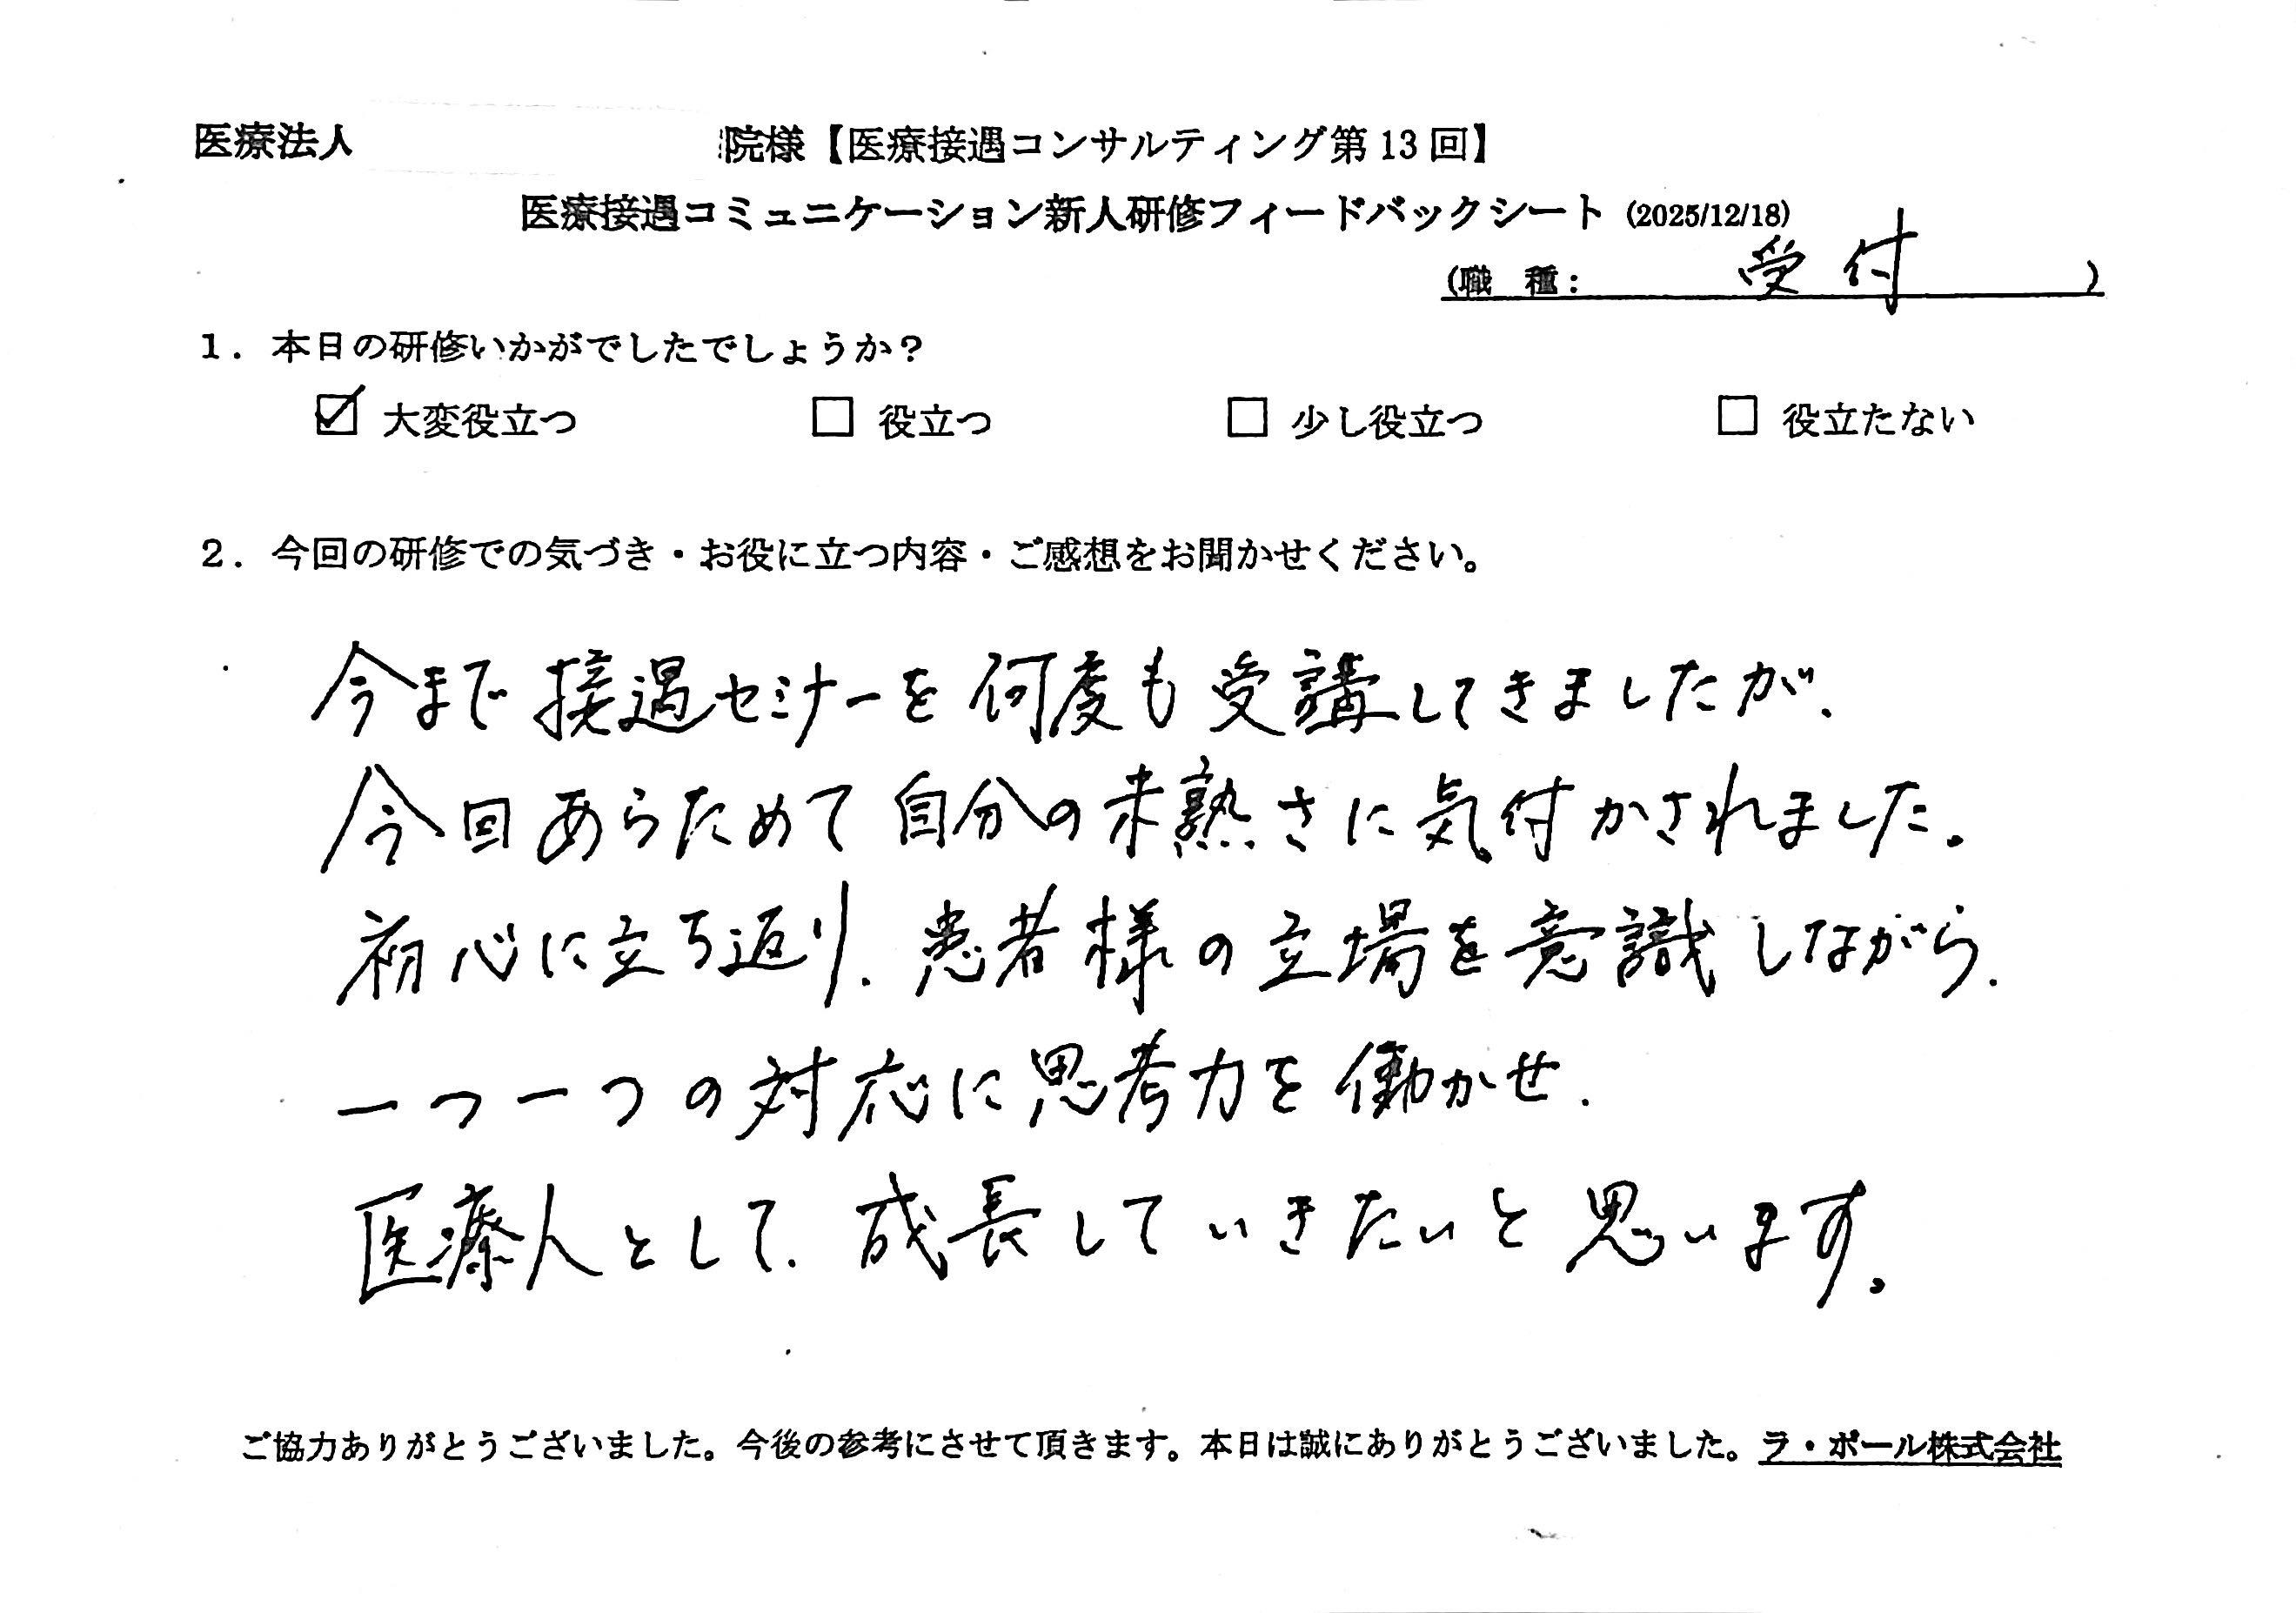 医療法人 院様【医療接遇コンサルティング第13回】
医療接遇コミュニケーション新人研修フィードバックシート (2025/12/18)
(職 種: 受付 )
1. 本日の研修いかがでしたでしょうか?
☑ 大変役立つ □ 役立つ □ 少し役立つ □ 役立たない
2. 今回の研修での気づき・お役に立つ内容・ご感想をお聞かせください。
今まで接遇セミナーを何度も受講してきましたが、
今回あらためて自分の未熟さに気付かされました。
初心に立ち返り、患者様の立場を意識しながら、
一つ一つの対応に思考力を働かせ、
医療人として、成長していきたいと思います。
ご協力ありがとうございました。今後の参考にさせて頂きます。本日は誠にありがとうございました。ラ・ポール株式会社